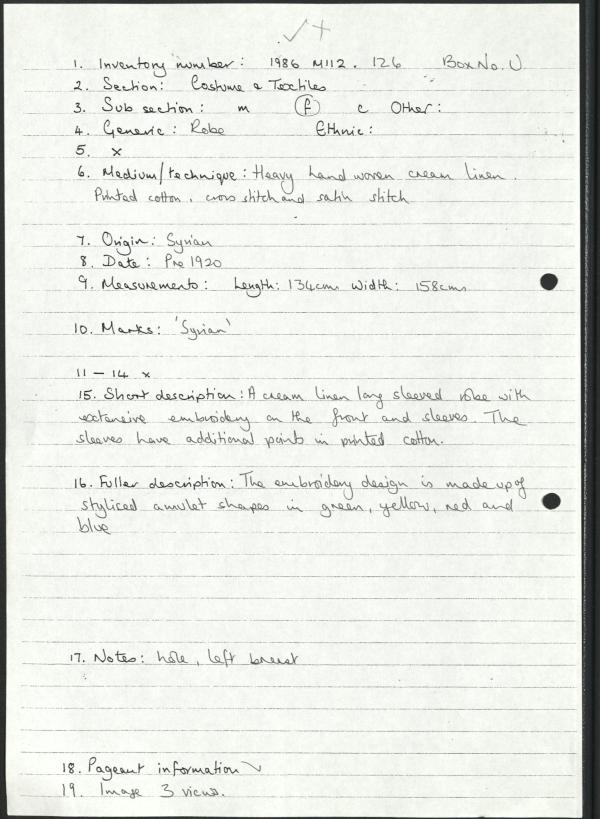 1. Inventory number: 1986 M112. 126 Box No. U
2. Section: Costume & Textiles
3. Sub section: m f c Other:
4. Generic: Robe Ethnic:
5. x
6. Medium/technique: Heavy hand woven cream linen.
Printed cotton, cross stitch and satin stitch
7. Origin: Syrian
8. Date: Pre 1920
9. Measurements: Length: 134cms Width: 158cms
10. Marks: 'Syrian'
11 - 14 x
15. Short description: A cream linen long sleeved robe with
extensive embroidery on the front and sleeves. The
sleeves have additional points in printed cotton.
16. Fuller description: The embroidery design is made up of
styliced amulet shapes in green, yellow, red and
blue
17. Notes: hole, left breast
18. Pageant information
19. Image 3 views.